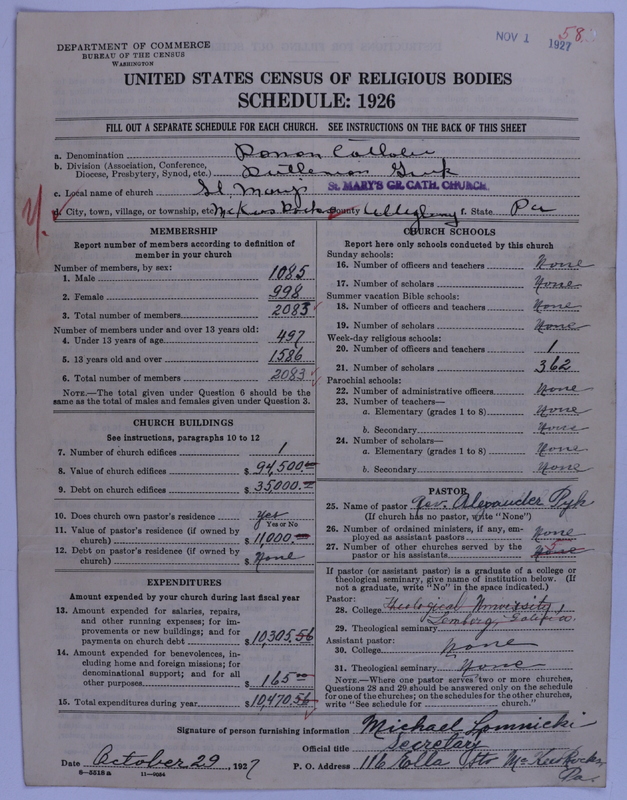 NOV 1 1927
58
DEPARTMENT OF COMMERCE
BUREAU OF THE CENSUS
WASHINGTON
UNITED STATES CENSUS OF RELIGIOUS BODIES
SCHEDULE: 1926
FILL OUT A SEPARATE SCHEDULE FOR EACH CHURCH. SEE INSTRUCTIONS ON THE BACK OF THIS SHEET
a. Denomination
b. Division (Association, Conference, Diocese, Presbytery, Synod, etc.)
c. Local name of church St. Marys ST. MARY'S GR. CATH. CHURCH.
d. City, town, village, or township, etc. McKees Rocks e. County Allegheny f. State Pa
MEMBERSHIP
Report number of members according to definition of member in your church
Number of members, by sex:
1. Male 1085
2. Female 998
3. Total number of members 2083
Number of members under and over 13 years old:
4. Under 13 years of age 497
5. 13 years old and over 1586
6. Total number of members 2083
NOTE.—The total given under Question 6 should be the same as the total of males and females given under Question 3.
CHURCH BUILDINGS
See instructions, paragraphs 10 to 12
7. Number of church edifices 1
8. Value of church edifices $ 94,500.00
9. Debt on church edifices $ 35000.00
10. Does church own pastor's residence yes
Yes or No
11. Value of pastor's residence (if owned by church) $ 11,000.00
12. Debt on pastor's residence (if owned by church) $ None
EXPENDITURES
Amount expended by your church during last fiscal year
13. Amount expended for salaries, repairs, and other running expenses; for improvements or new buildings; and for payments on church debt $ 10,305.56
14. Amount expended for benevolences, including home and foreign missions; for denominational support; and for all other purposes $ 165.00
15. Total expenditures during year $ 10,470.56
CHURCH SCHOOLS
Report here only schools conducted by this church
Sunday schools:
16. Number of officers and teachers None
17. Number of scholars None
Summer vacation Bible schools:
18. Number of officers and teachers None
19. Number of scholars None
Week-day religious schools:
20. Number of officers and teachers 1
21. Number of scholars 362
Parochial schools:
22. Number of administrative officers None
23. Number of teachers—
a. Elementary (grades 1 to 8) None
b. Secondary None
24. Number of scholars—
a. Elementary (grades 1 to 8) None
b. Secondary None
PASTOR
25. Name of pastor Rev. Alexander Pyk
(If church has no pastor, write "None")
26. Number of ordained ministers, if any, employed as assistant pastors None
27. Number of other churches served by the pastor or his assistants None
If pastor (or assistant pastor) is a graduate of a college or theological seminary, give name of institution below. (If not a graduate, write "No" in the space indicated.)
Pastor:
28. College Theological University
29. Theological seminary Lemberg, Galicia
Assistant pastor:
30. College None
31. Theological seminary None
NOTE.—Where one pastor serves two or more churches, Questions 28 and 29 should be answered only on the schedule for one of the churches; on the schedules for the other churches, write "See schedule for church."
Signature of person furnishing information Michael Lomnicki
Official title Secretary
Date October 29, 1927 P. O. Address 116 Ella Str McKees Rocks, Pa.
8—5518a 11—9084